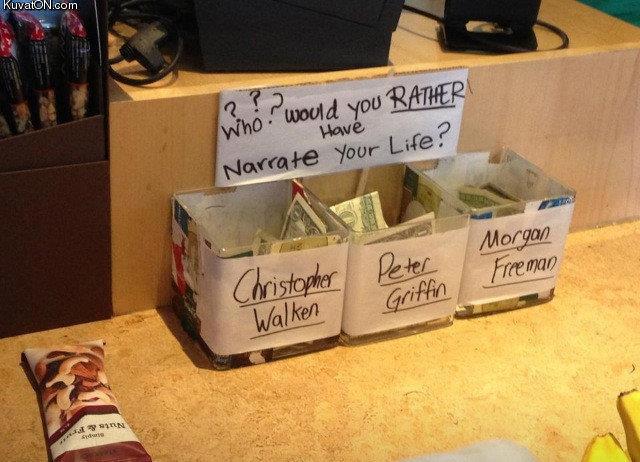 KuvatON.com
? ? ?
Who? would you RATHER
Have
Narrate Your Life?
Christopher
Walken
Peter
Griffin
Morgan
Freeman
Simply
Nuts & Fruit